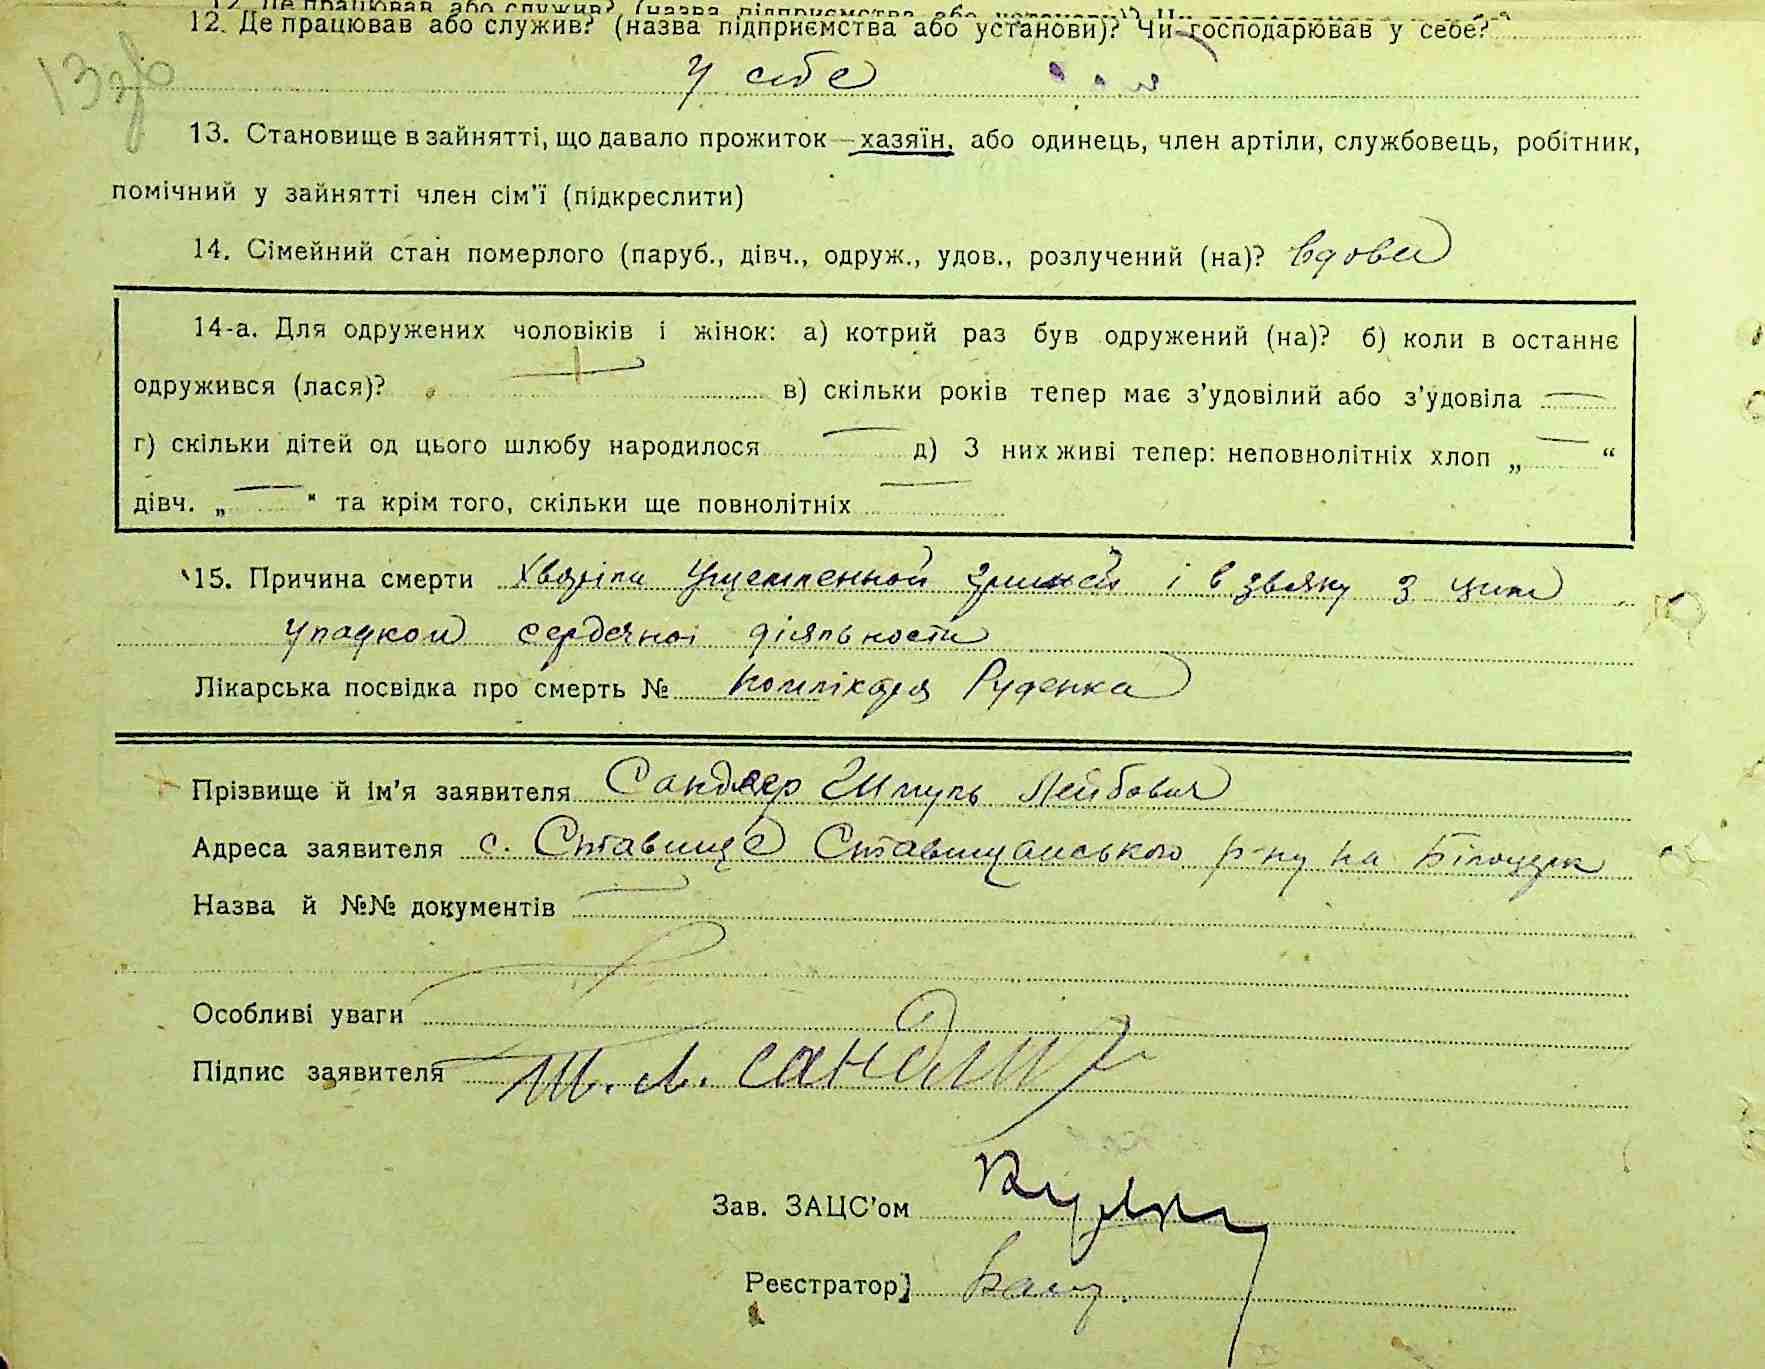 12. Де працював або служив? (назва підприємства або установи)? Чи господарював у себе?
у себе
13. Становище в зайнятті, що давало прожиток—хазяїн, або одинець, член артіли, службовець, робітник,
помічний у зайнятті член сім'ї (підкреслити)
14. Сімейний стан померлого (паруб., дівч., одруж., удов., розлучений (на)? вдова
14-а. Для одружених чоловіків і жінок: а) котрий раз був одружений (на)? б) коли в останнє
одружився (лася)? в) скільки років тепер має з'удовілий або з'удовіла
г) скільки дітей од цього шлюбу народилося д) З них живі тепер: неповнолітніх хлоп „ — “
дівч. „ — “ та крім того, скільки ще повнолітніх
15. Причина смерти Хворіла ущемленной і в звяку з цим
упадком сердечної діяльности
Лікарська посвідка про смерть № Руденка
Прізвище й ім'я заявителя Сандлер Шмуль Лейбович
Адреса заявителя с. Ставище Ставищанського р-ну на Білоцерк
Назва й №№ документів
Особливі уваги
Підпис заявителя Ш. Л. Сандл
Зав. ЗАЦС'ом
Реєстратор